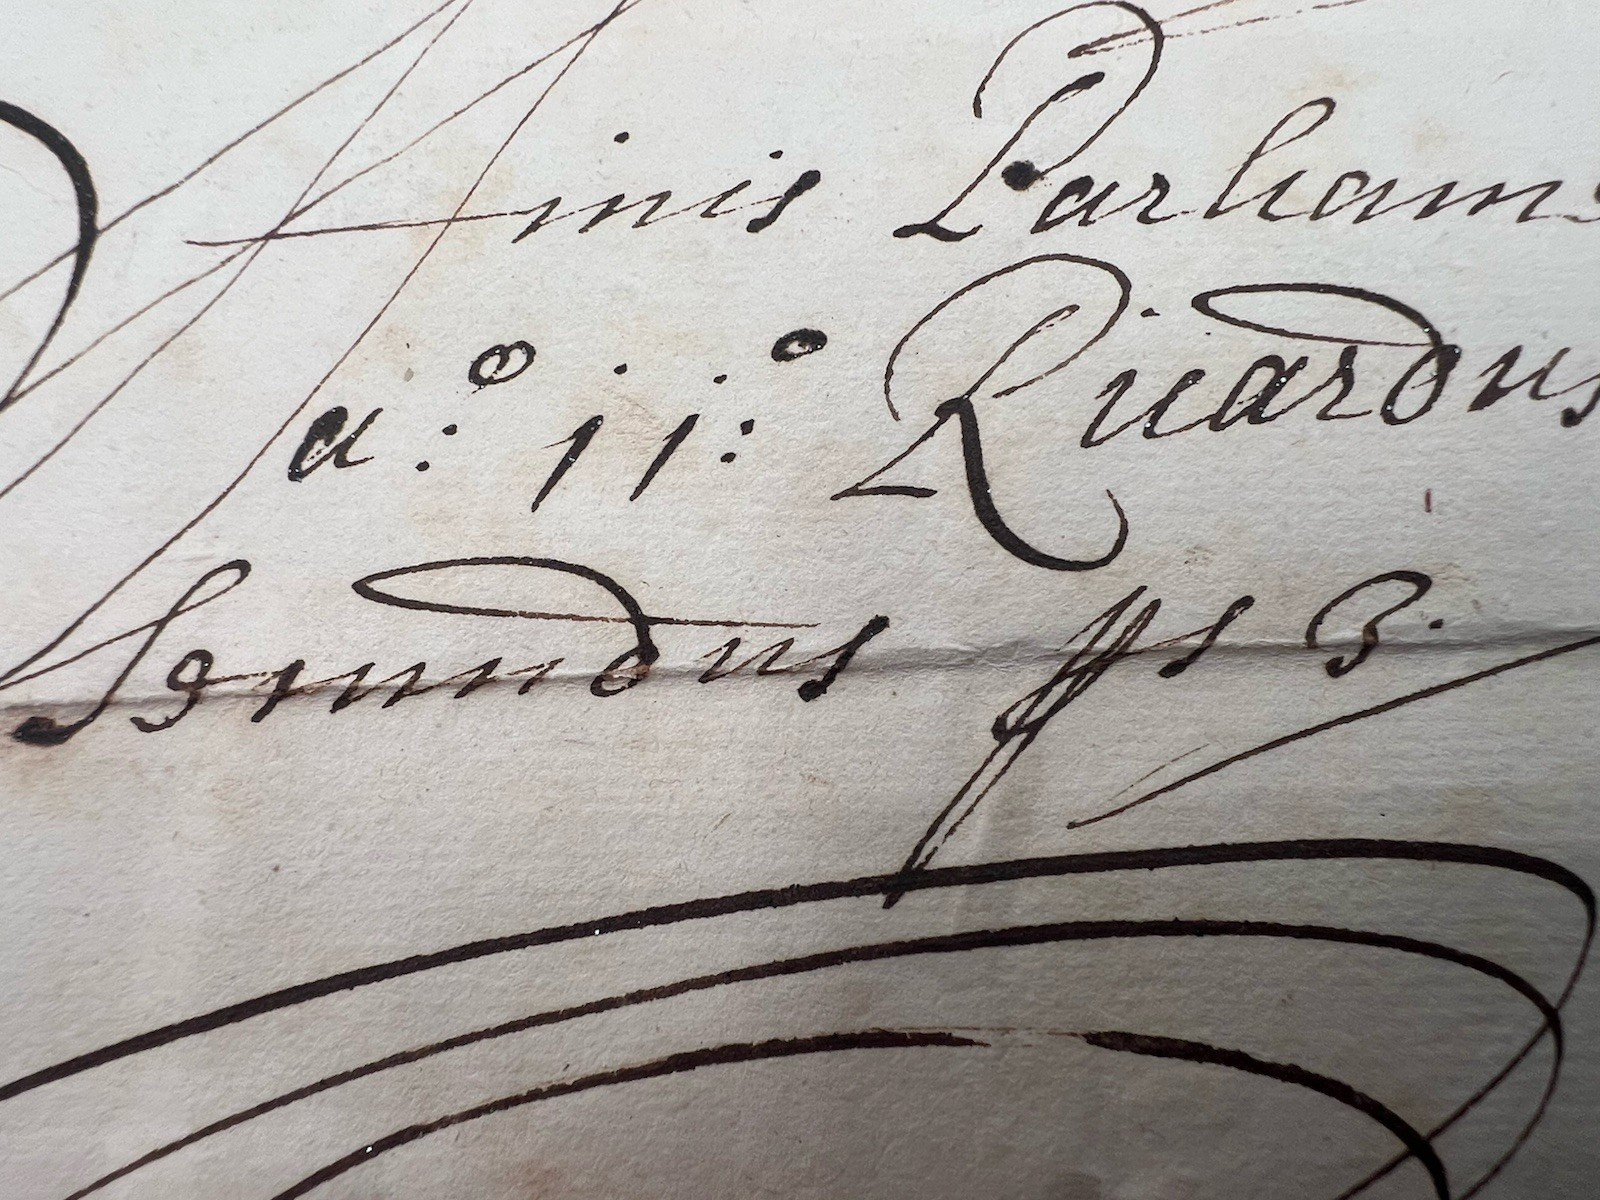 Finis Parliam
a:º 11:º Ricardus
Secundus